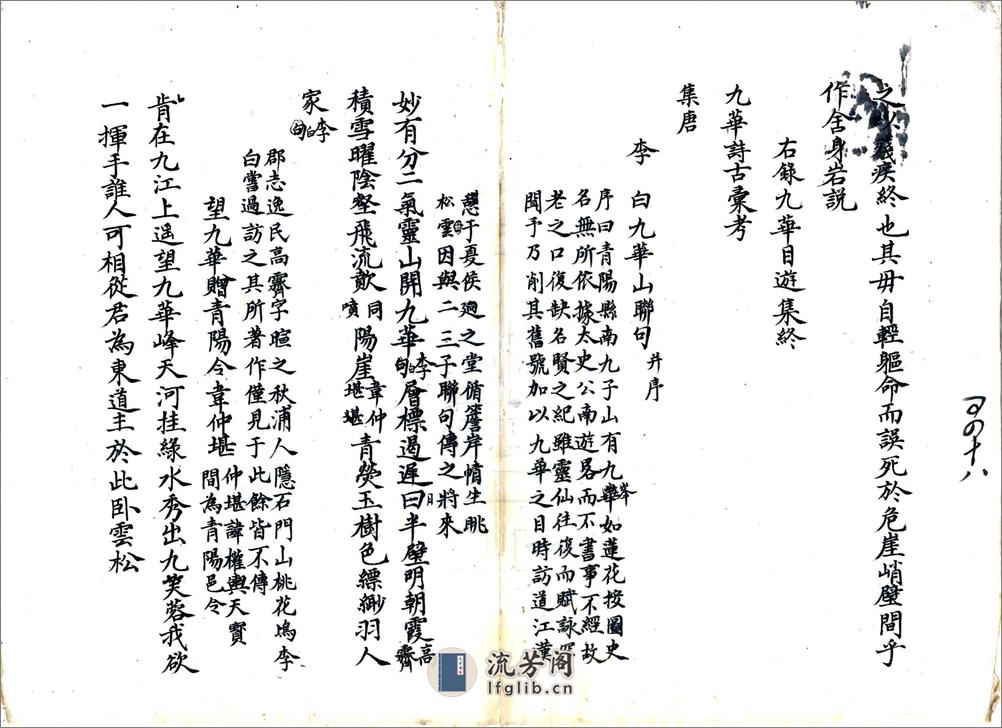 之以癈疾終也其毋自輕軀命而誤死於危崖峭壁間乎
作舍身岩説
右錄九華日遊集終
九華詩古彙考
集唐
李白九華山聯句并序
序曰青陽縣南九子山有九峯如蓮花按圖史
名無所依據太史公南遊畧而不書事不經故
老之口復缺名賢之紀雖靈仙往復而賦詠罕
聞予乃削其舊號加以九華之目時訪道江漢
憇于夏侯廻之堂脩簷岸幘坐眺
松雲因與二三子聯句傳之將來
妙有分二氣靈山開九華李白句層標遏遲日半壁明朝霞高霽
積雪曜陰壑飛流歕同噴陽崖韋仲堪青熒玉樹色縹緲羽人
家李白句
郡志逸民高霽字暄之秋浦人隱石門山桃花塢李
白嘗過訪之其所著作僅見于此餘皆不傳
望九華贈青陽令韋仲堪仲堪諱權輿天寳間為青陽邑令
昔在九江上遥望九華峰天河挂綠水秀出九芙蓉我欲
一揮手誰人可相從君為東道主於此卧雲松
流芳阁
lfglib.cn